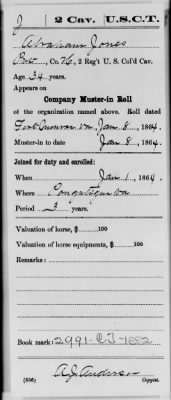 J | 2 Cav. | U.S.C.T.
Abraham Jones
Pvt, Co. , 2 Reg't U. S. Col'd Cav.
Age 34 years.
Appears on
Company Muster-in Roll
of the organization named above. Roll dated
Fort Monroe Va, Jan 8, 1864.
Muster-in to date Jan 8, 1864.
Joined for duty and enrolled:
When Jan 1, 1864.
Where
Period 3 years.
Valuation of horse, $ 100
Valuation of horse equipments, $ 100
Remarks:
Book mark: 2991-CT-1882
A J Anderson
(356) Copyist.